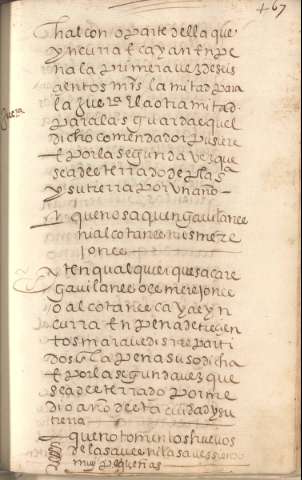 467
thalcon o parte della que
yncurra e cayan en pe
na la primera vez de seis
cientos mrs la mitad para
la guerra e la otra mitad
para las guardas e quel
dicho comendador pusiere
e por la segunda vez que
sea desterrado de plasª
y su tierra por un año
que no saquen gavilane e
ni alcotane e ni esmere
jones
yten qualquier que sacare
gavilanes o esmerejones
o alcotanes caya e yn
curra en pena de trezien
tos maravedis repartidos
dos la pena susodicha
e por la segunda vez que
sea desterrado por me
dio año desta ciudad y su
tierra
que no tomen los huevos
de las aves ni las aves siendo
muy pequeñas